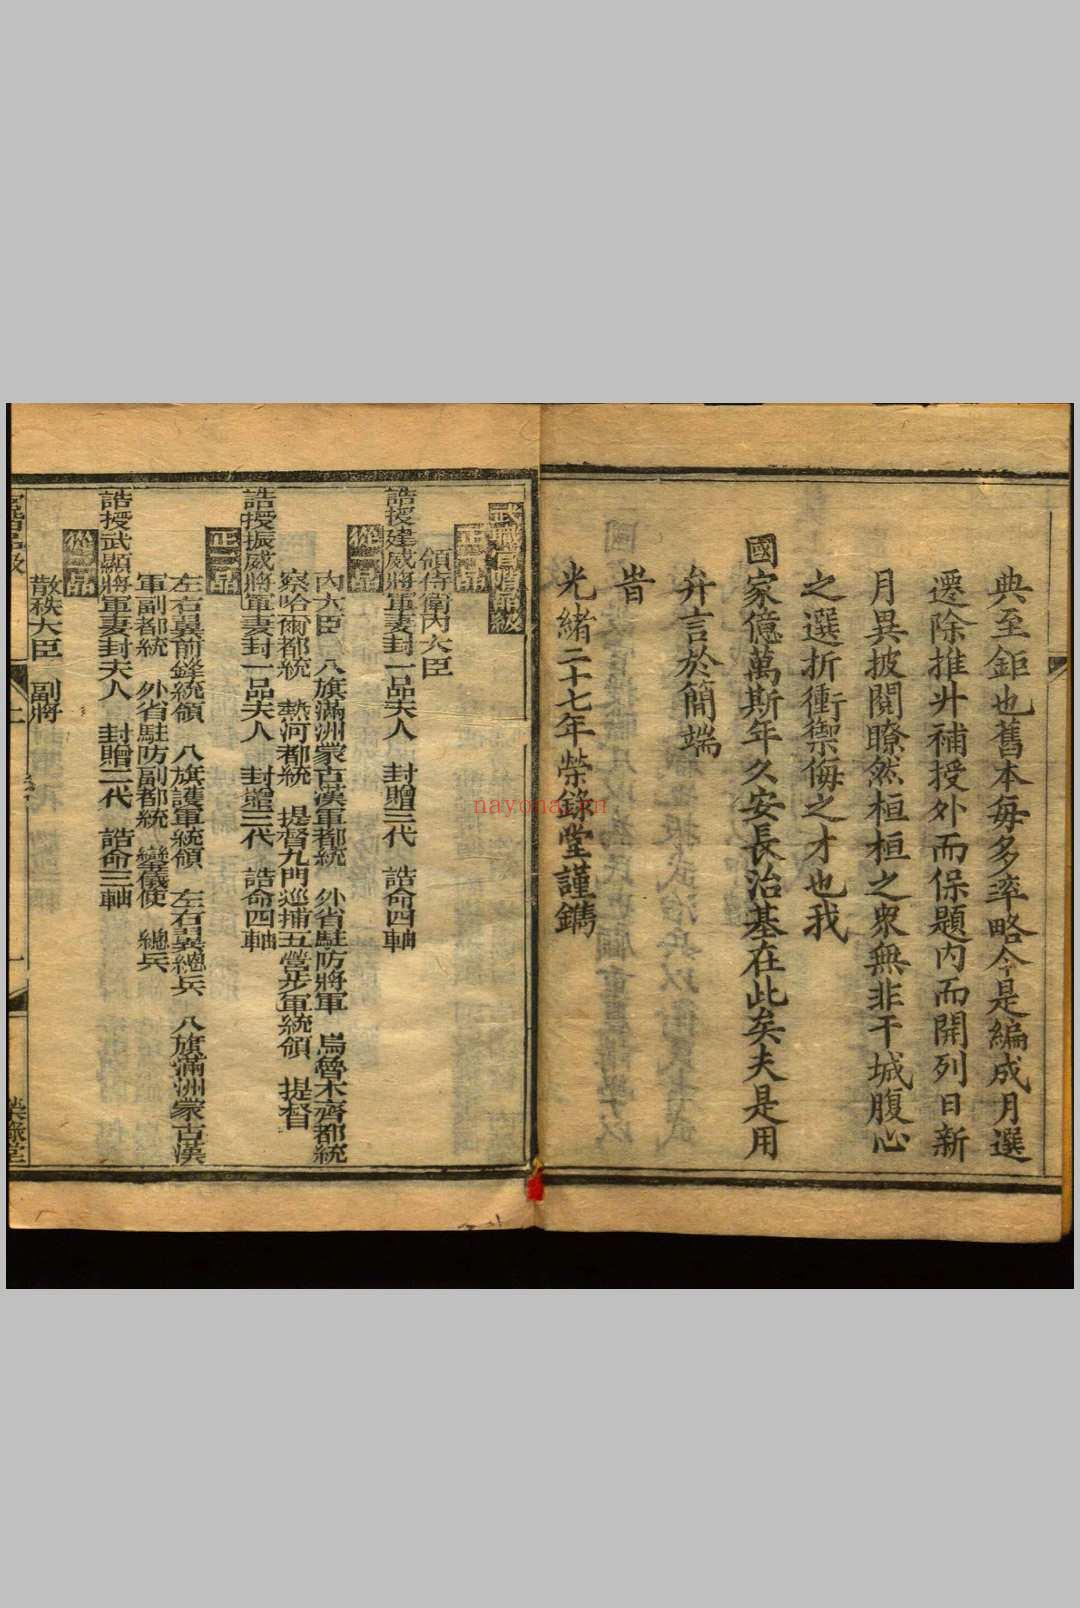 典至鉅也舊本每多率略今是編成月選
遷除推升補授外而保題內而開列日新
月異披閱瞭然桓桓之衆無非干城腹心
之選折衝禦侮之才也我
國家億萬斯年久安長治基在此矣夫是用
弁言於簡端
旹
光緒二十七年榮錄堂謹鐫
武職官階品級
正一品
領侍衛內大臣
誥授建威將軍妻封一品夫人 封贈三代 誥命四軸
從一品
內大臣 八旗滿洲蒙古漢軍都統 外省駐防將軍 烏魯木齊都統
察哈爾都統 熱河都統 提督九門巡捕五營步軍統領 提督
誥授振威將軍妻封一品夫人 封贈三代 誥命四軸
正二品
左右翼前鋒統領 八旗護軍統領 左右翼總兵 八旗滿洲蒙古漢
軍副都統 外省駐防副都統 鑾儀使 總兵
誥授武顯將軍妻封夫人 封贈二代 誥命三軸
從二品
散秩大臣 副將
官階品級
榮錄堂
nayona.cn